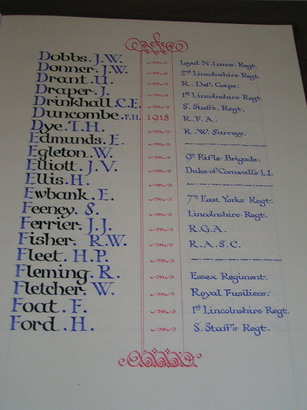 Dobbs. J.W. Loyal N. Lancs. Regt.
Donner. J.W. 2nd Lincolnshire Regt.
Drant. U. R. Def. Corps.
Draper. J. 1st Lincolnshire Regt.
Drinkhall. C.E. S. Staffs. Regt.
Duncombe. F.H. 1918 R.F.A.
Dye. T.H. R.W. Surreys.
Edmunds. E.
Egleton. W. 9th Rifle Brigade.
Elliott. J.V. Duke of Cornwall's L.I.
Ellis. H.
Ewbank. E. 7th East Yorks Regt.
Feeney. S. Lincolnshire Regt.
Ferrier. J.J. R.G.A.
Fisher. R.W. R.A.S.C.
Fleet. H.P.
Fleming. R. Essex Regiment.
Fletcher. W. Royal Fusiliers.
Foat. F. 1st Lincolnshire Regt.
Ford. H. S. Staffs Regt.